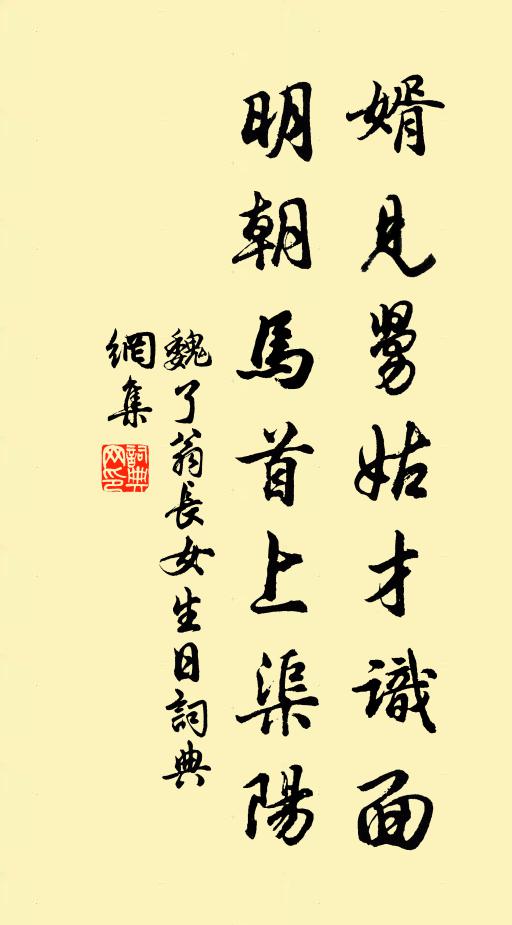 婿見舅姑才識面
明朝馬首上渠陽
魏了翁長女生日詞典
網集
詞典
网印